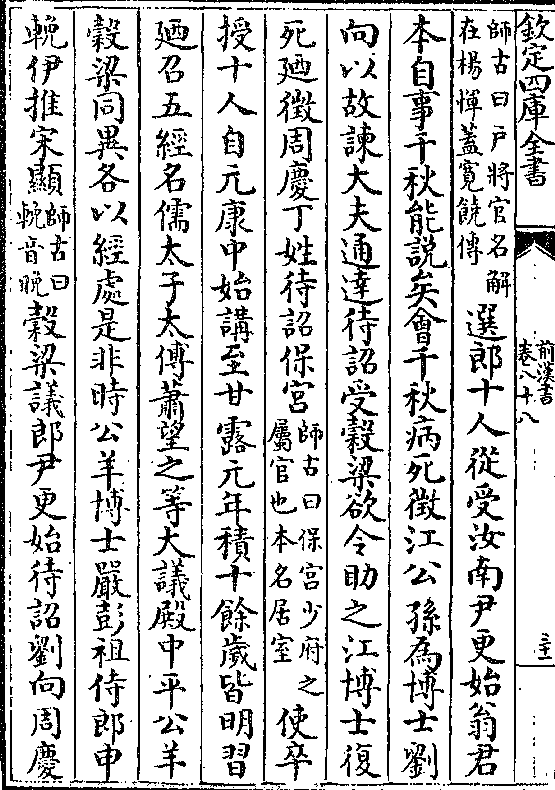 欽定四庫全書
前漢書
卷八十八
三十一
師古曰戸將官名解
在楊惲蓋寛饒傳
選郎十人從受汝南尹更始翁君
本自事千秋能說矣會千秋病死徵江公孫為博士劉
向以故諫大夫通達待詔受穀梁欲令助之江博士復
死廼徵周慶丁姓待詔保宮
師古曰保宮少府之
屬官也本名居室
使卒
授十人自元康中始講至甘露元年積十餘歲皆明習
廼召五經名儒太子太傅蕭望之等大議殿中平公羊
穀梁同異各以經處是非時公羊博士嚴彭祖侍郎申
輓伊推宋顯
師古曰
輓音晚
穀梁議郎尹更始待詔劉向周慶